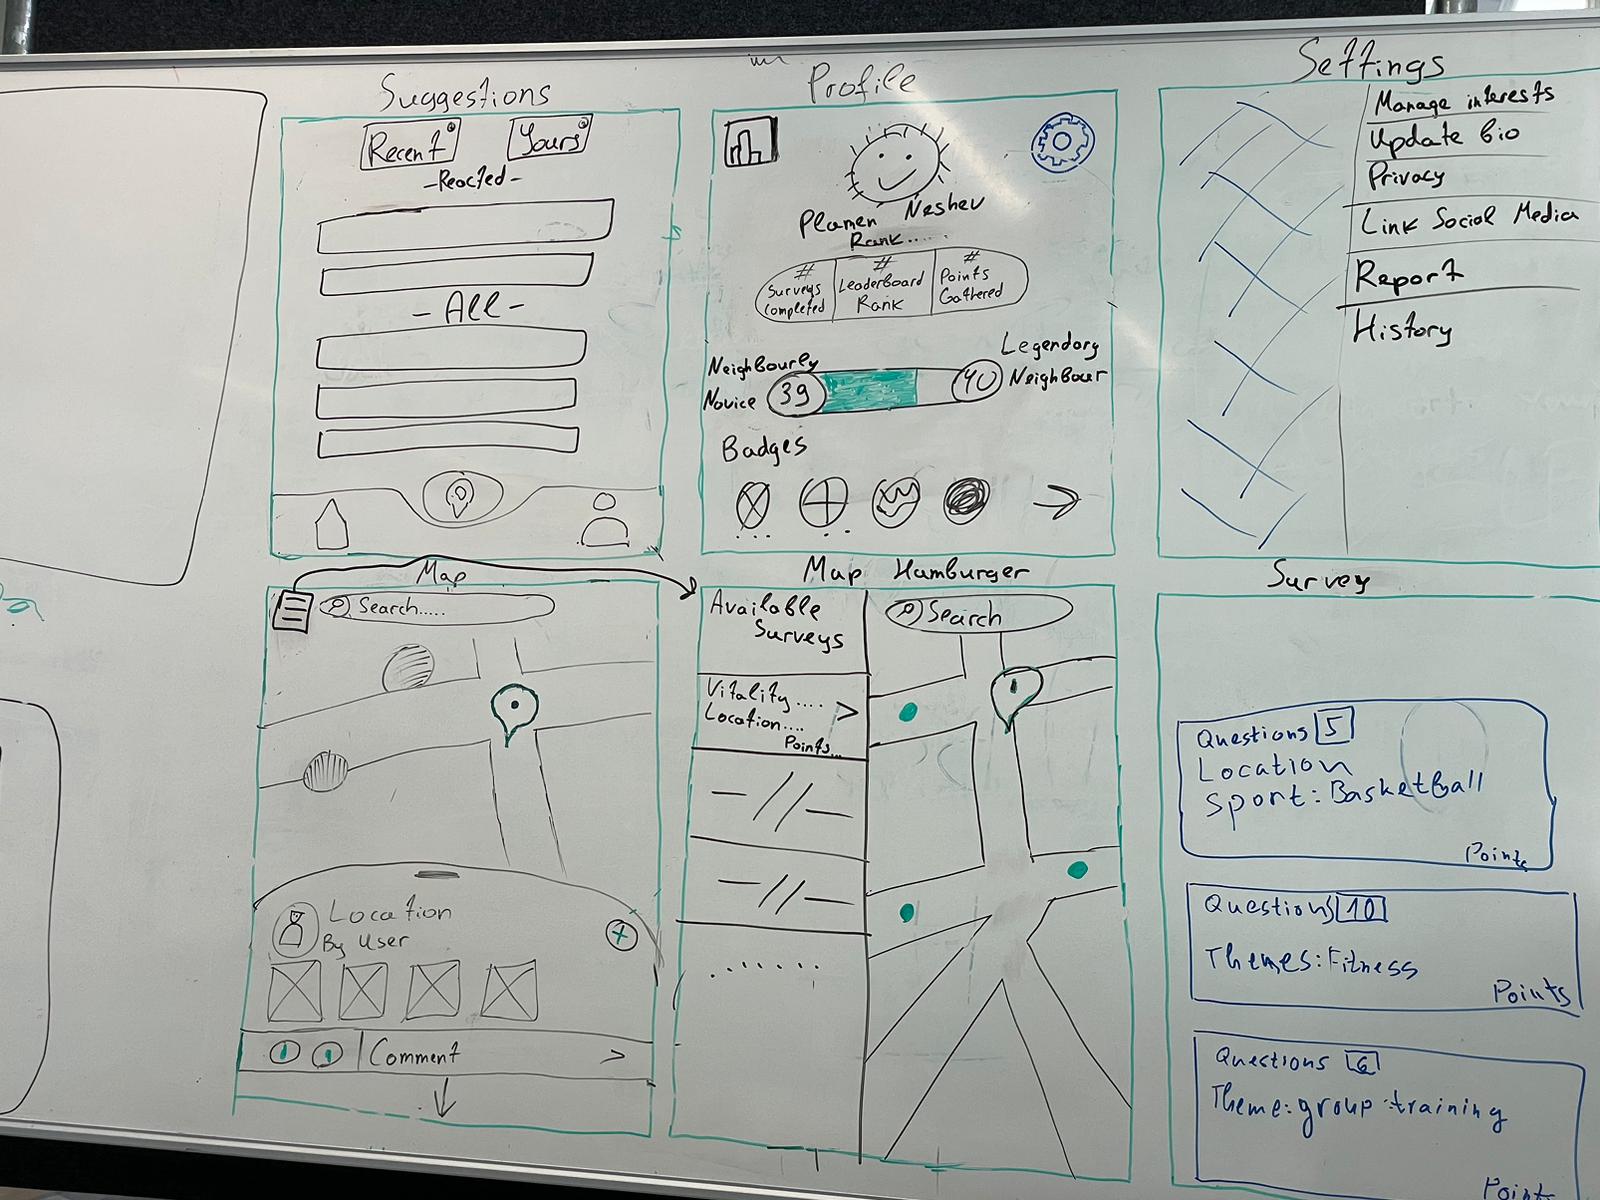 Suggestions
Recent
Yours
-Reacted-
-All-
Profile
Plamen Neshev
Rank.....
# # #
Surveys completed
Leaderboard Rank
Points Gathered
Neighbourly Novice
39
40
Legendary Neighbour
Badges
Settings
Manage interests
Update bio
Privacy
Link Social Media
Report
History
Map
Search.....
Location
By User
Comment
Map Hamburger
Available
Surveys
Search
Vitality....
Location....
Points...
Survey
Questions 5
Location
Sport: Basketball
Points
Questions 10
Themes: Fitness
Points
Questions 6
Theme: group training
Points